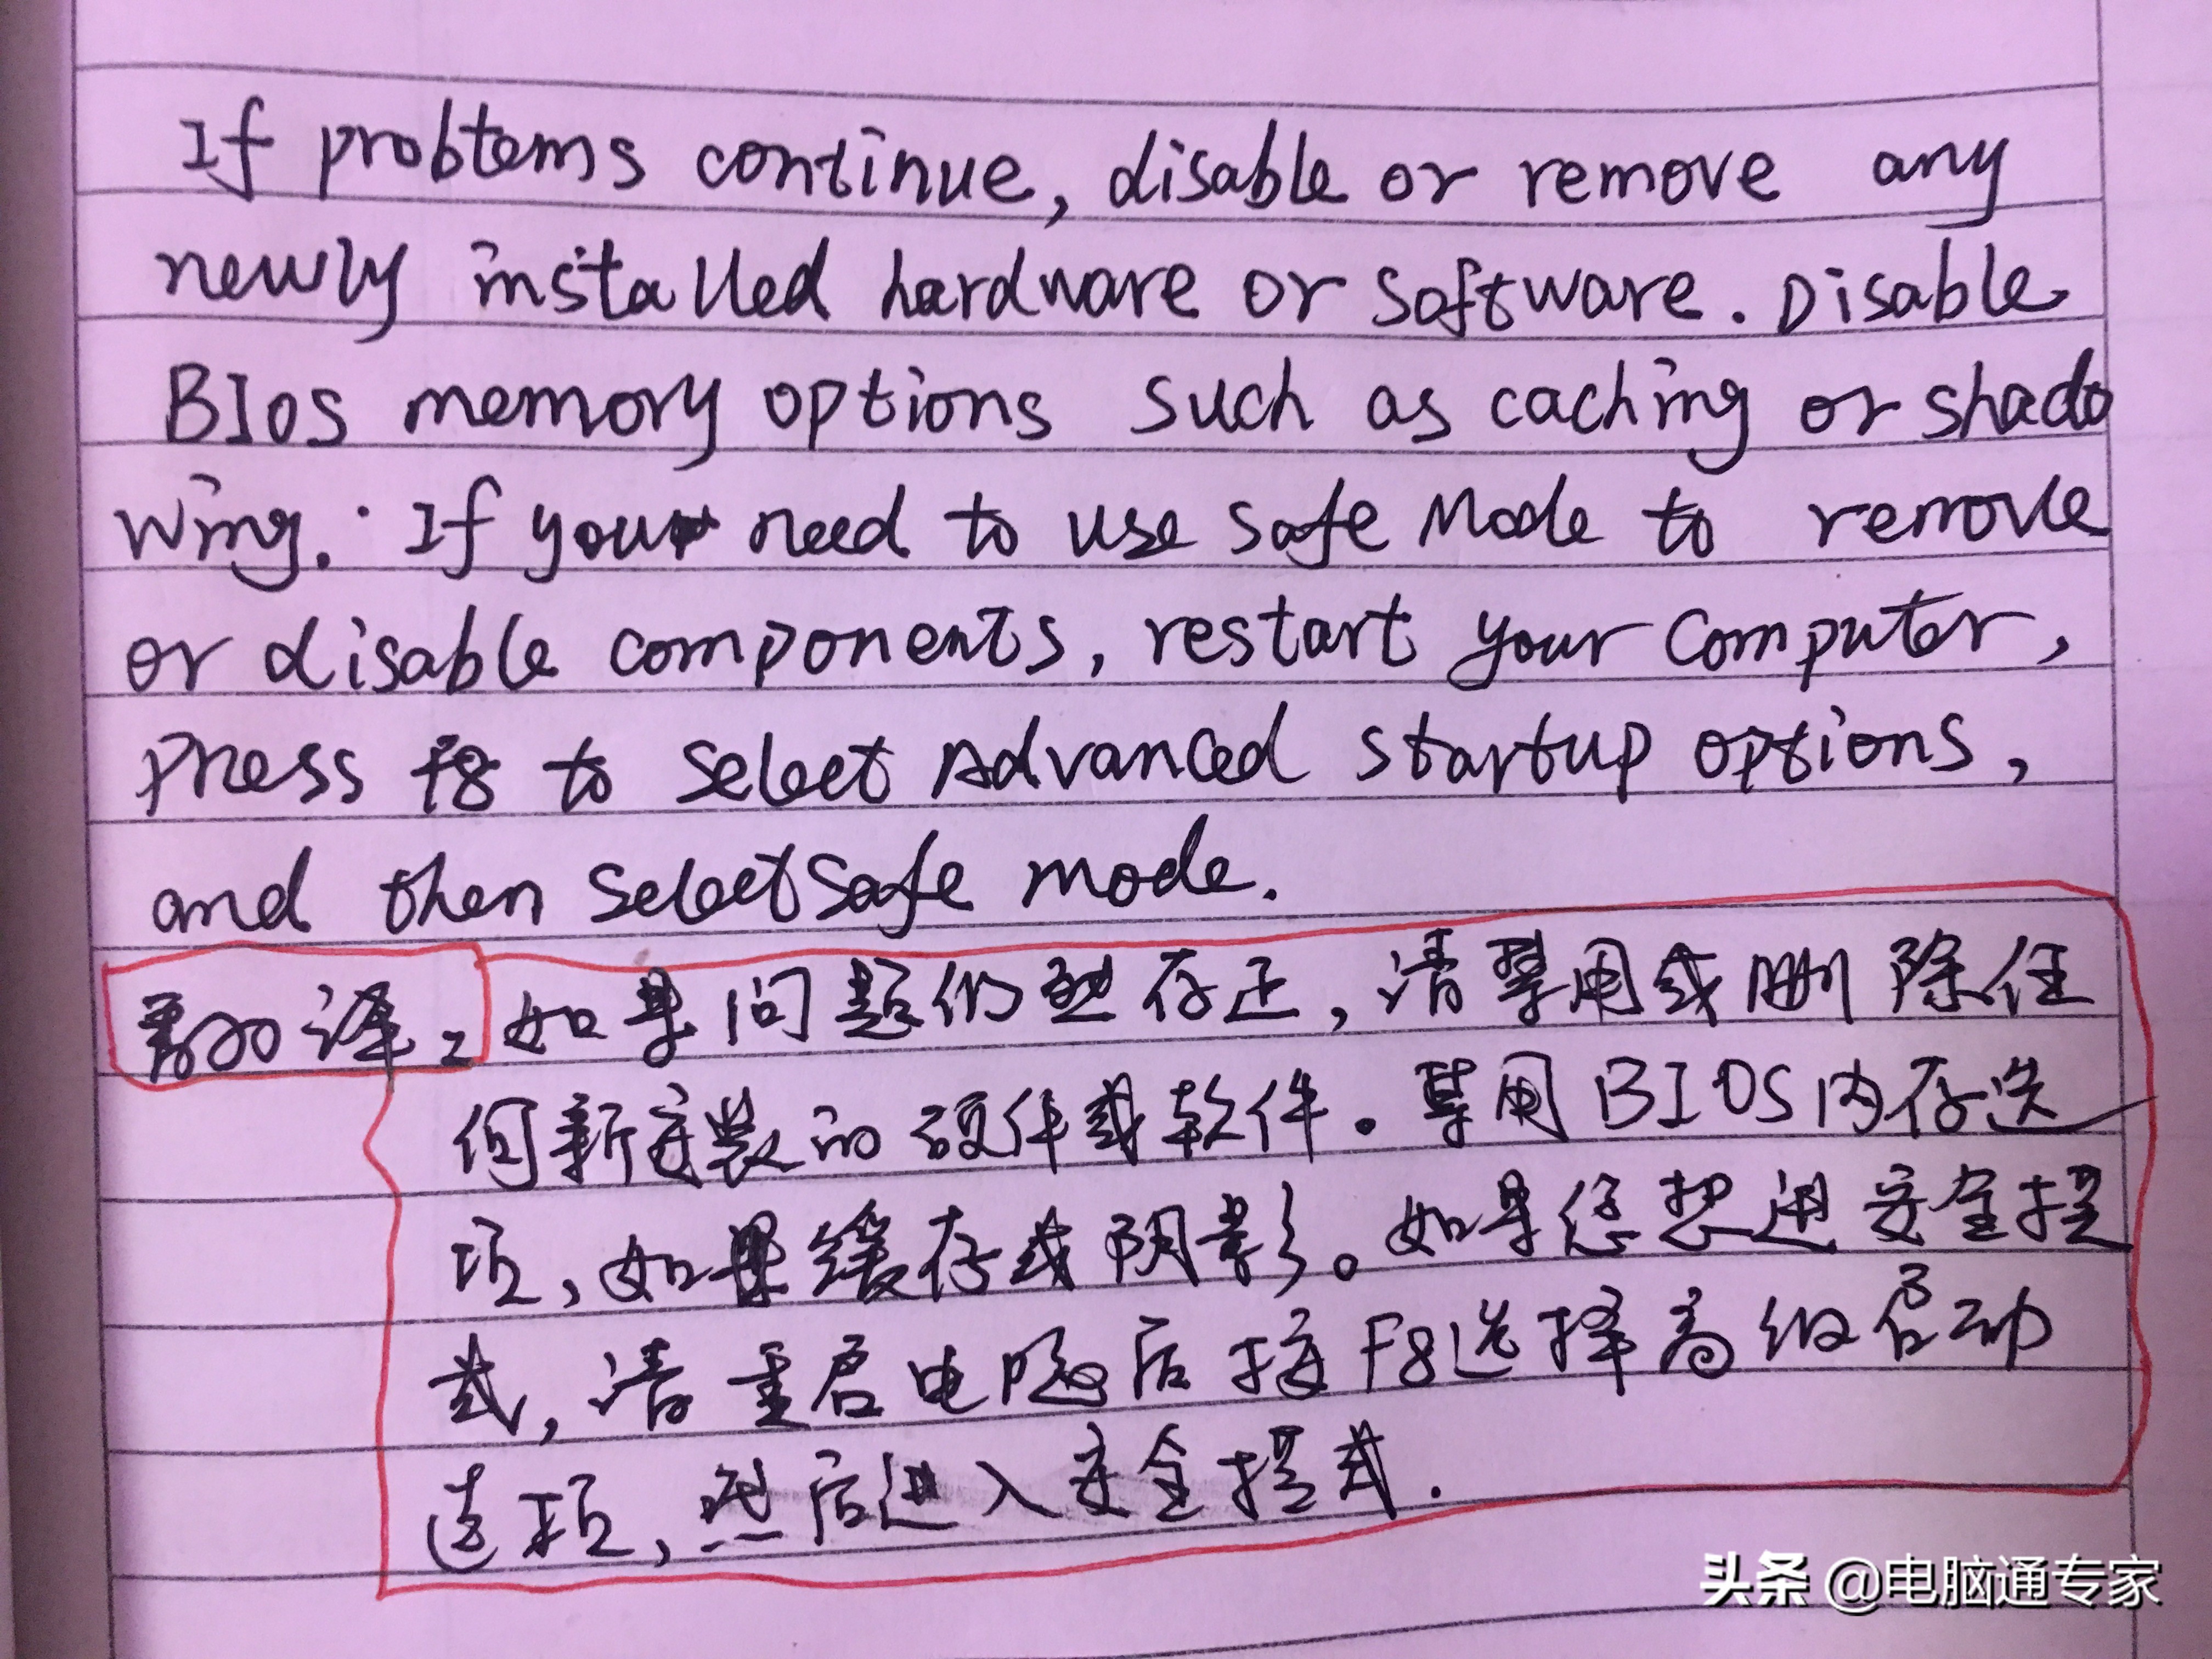 If problems continue, disable or remove any
newly installed hardware or software. Disable
BIos memory options such as caching or shado
wing. If your need to use safe Mode to remove
or disable components, restart your computer,
press f8 to select Advanced startup options,
and then select safe mode.
翻译: 如果问题仍然存在,请禁用或删除任
何新安装的硬件或软件。禁用BIOS内存选
项,如果缓存或阴影。如果您想进安全模
式,请重启电脑后按F8选择高级启动
选项,然后进入安全模式.
头条 @电脑通专家